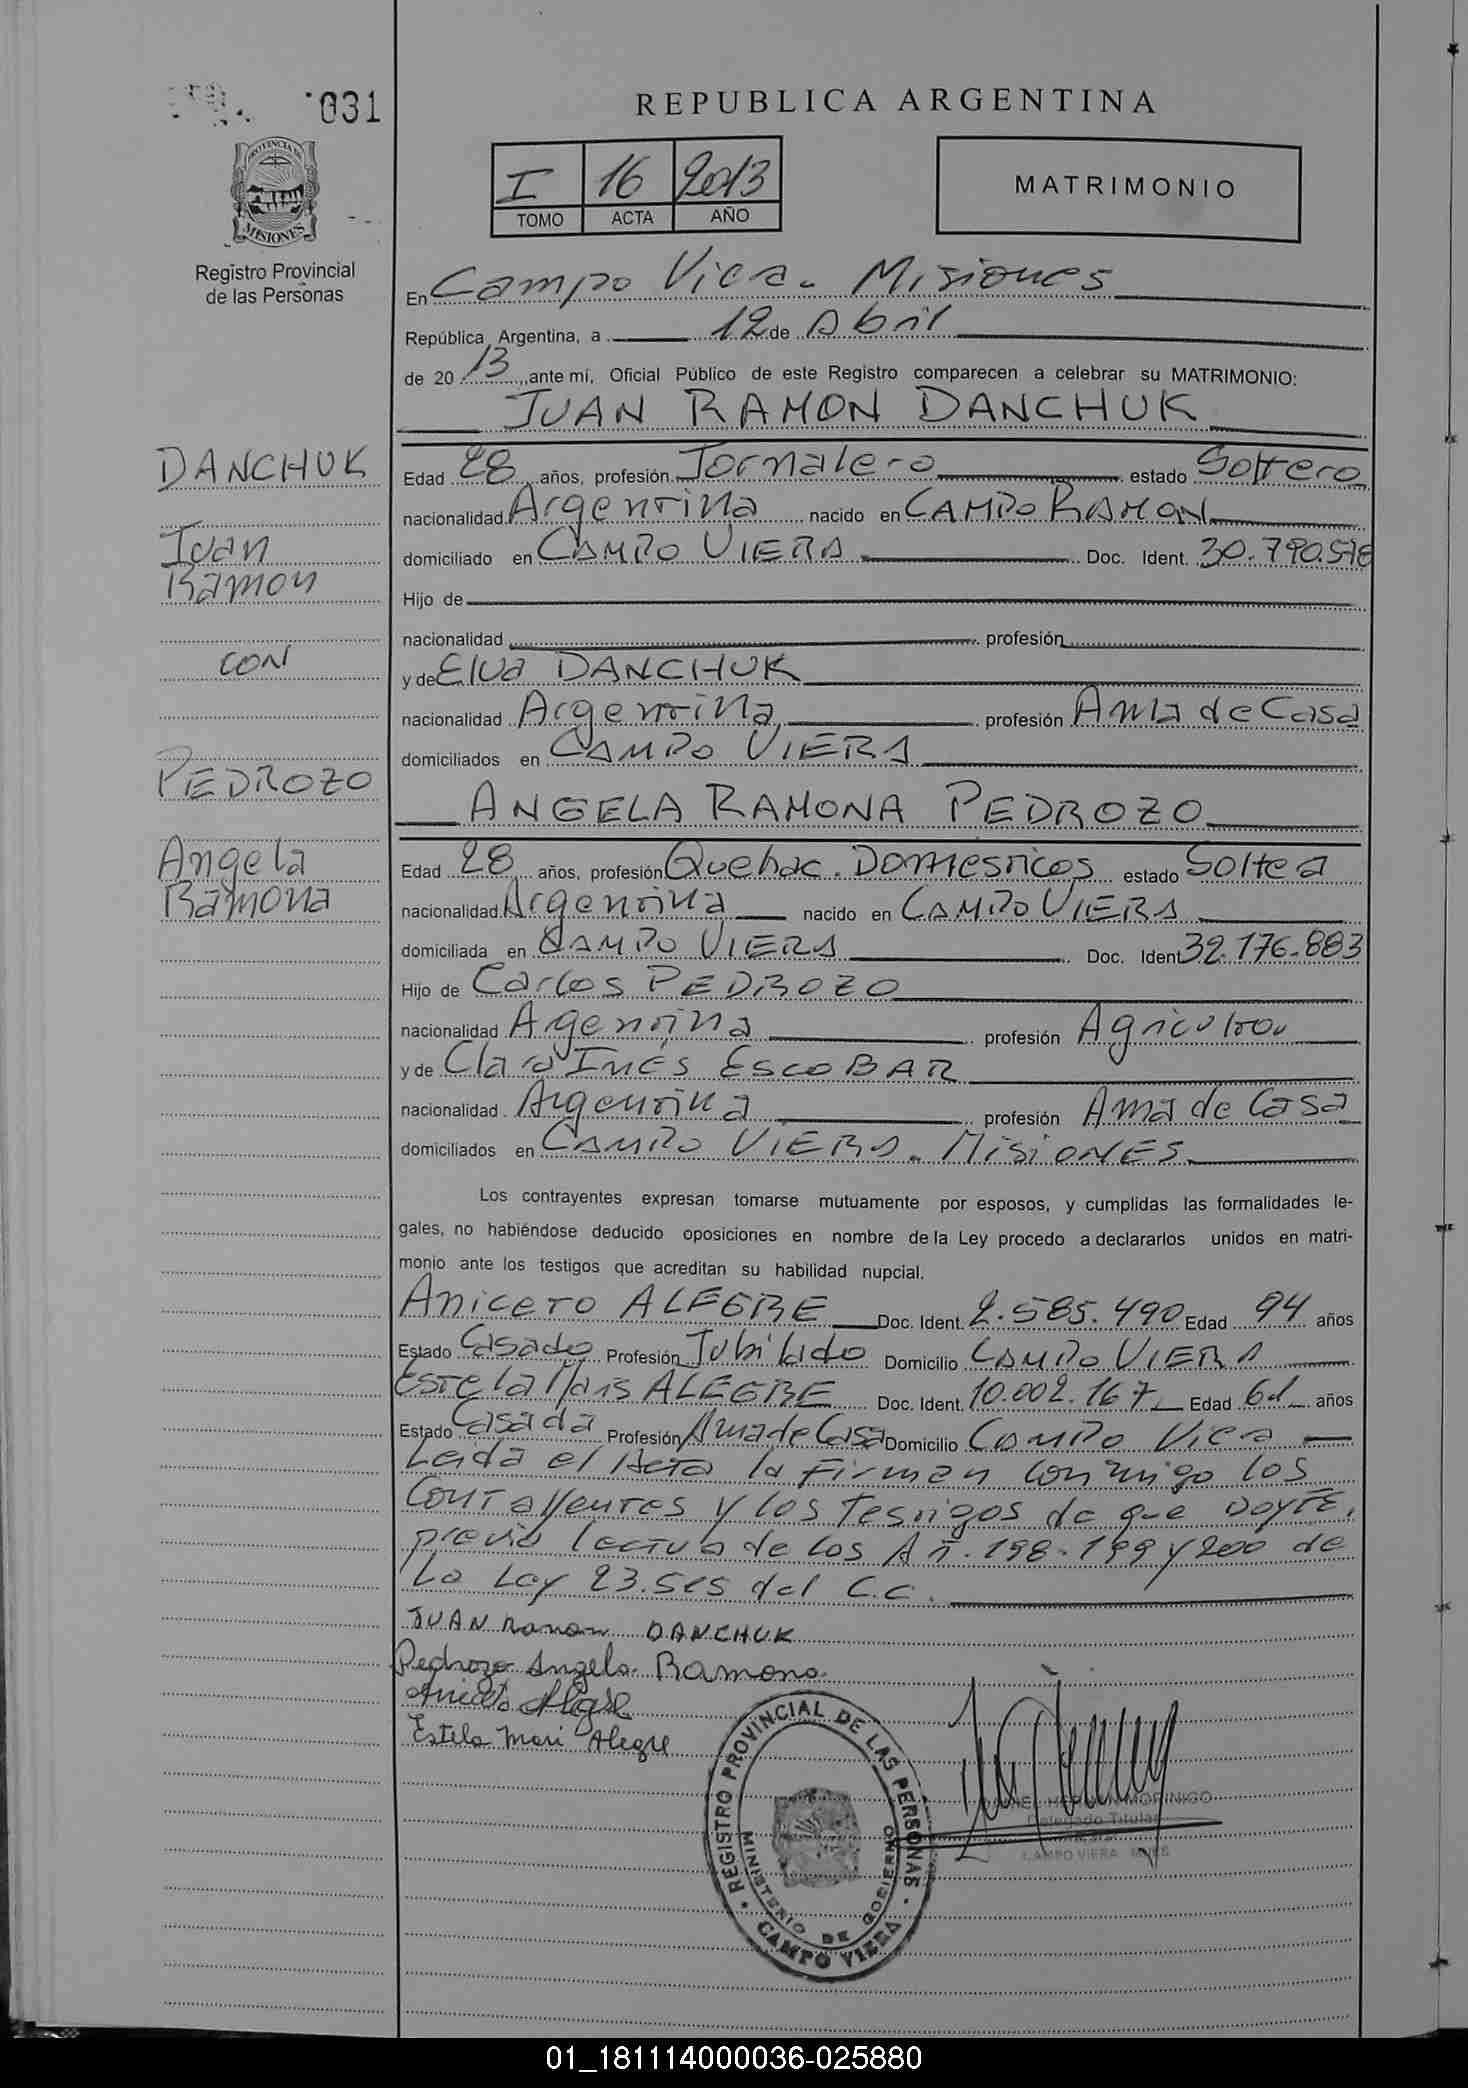 031
PROVINCIA DE
MISIONES
Registro Provincial
de las Personas
REPUBLICA ARGENTINA
I 16 2013
TOMO ACTA AÑO
MATRIMONIO
En Campo Viera - Misiones
República Argentina, a 12 de Abril
de 20 13 ante mí, Oficial Público de este Registro comparecen a celebrar su MATRIMONIO:
JUAN RAMON DANCHUK
DANCHUK
Juan
Ramon
con
PEDROZO
Angela
Ramona
Edad 28 años, profesión Jornalero estado Soltero
nacionalidad Argentina nacido en CAMPO RAMON
domiciliado en CAMPO VIERA Doc. Ident. 30.790.518
Hijo de
nacionalidad profesión
y de Elva DANCHUK
nacionalidad Argentina profesión Ama de Casa
domiciliados en CAMPO VIERA
ANGELA RAMONA PEDROZO
Edad 28 años, profesión Quehac. Domesticos estado Soltera
nacionalidad Argentina nacido en CAMPO VIERA
domiciliada en CAMPO VIERA Doc. Ident 32.176.883
Hijo de Carlos PEDROZO
nacionalidad Argentina profesión Agricultor
y de Clara Inés ESCOBAR
nacionalidad Argentina profesión Ama de Casa
domiciliados en CAMPO VIERA - MISIONES
Los contrayentes expresan tomarse mutuamente por esposos, y cumplidas las formalidades le-
gales, no habiéndose deducido oposiciones en nombre de la Ley procedo a declararlos unidos en matri-
monio ante los testigos que acreditan su habilidad nupcial.
Aniceto ALEGRE Doc. Ident. 2.585.490 Edad 94 años
Estado Casado Profesión Jubilado Domicilio CAMPO VIERA
Estela Maris ALEGRE Doc. Ident. 10.002.167 Edad 61 años
Estado Casada Profesión Ama de Casa Domicilio Campo Viera
Leida el Acta la Firman conmigo los
contrayentes y los Testigos de que doy FE,
previa lectura de los Art. 198-199 y 200 de
La Ley 23.515 del C.C.
JUAN Ramon DANCHUK
Pedrozo Angela Ramona
Aniceto Alegre
Estela Mari Alegre
REGISTRO PROVINCIAL DE LAS PERSONAS
MINISTERIO DE GOBIERNO
CAMPO VIERA
MORINIGO
Delegado Titular
CAMPO VIERA
01_181114000036-025880